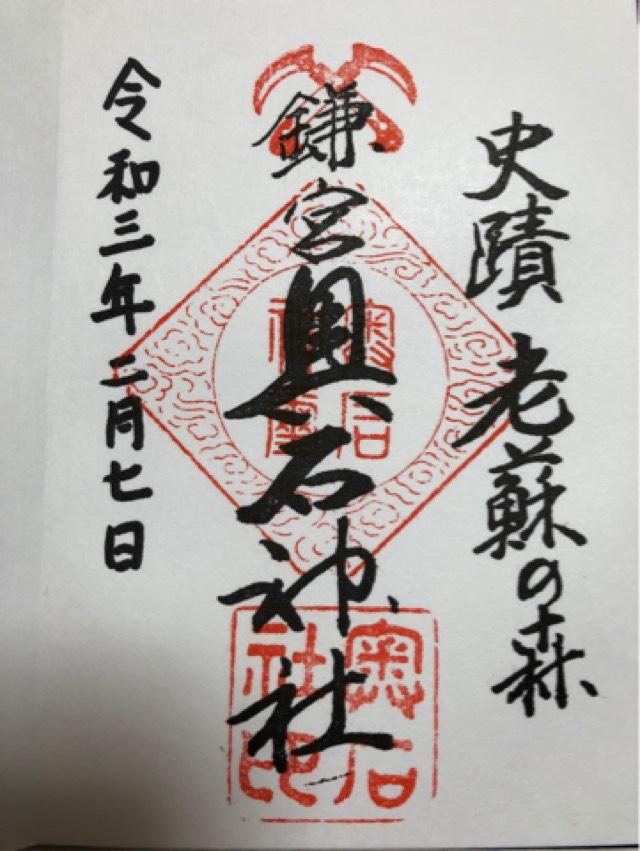 史蹟 老蘇の森
鎌宮奥石神社
令和三年二月七日
奥石
社印